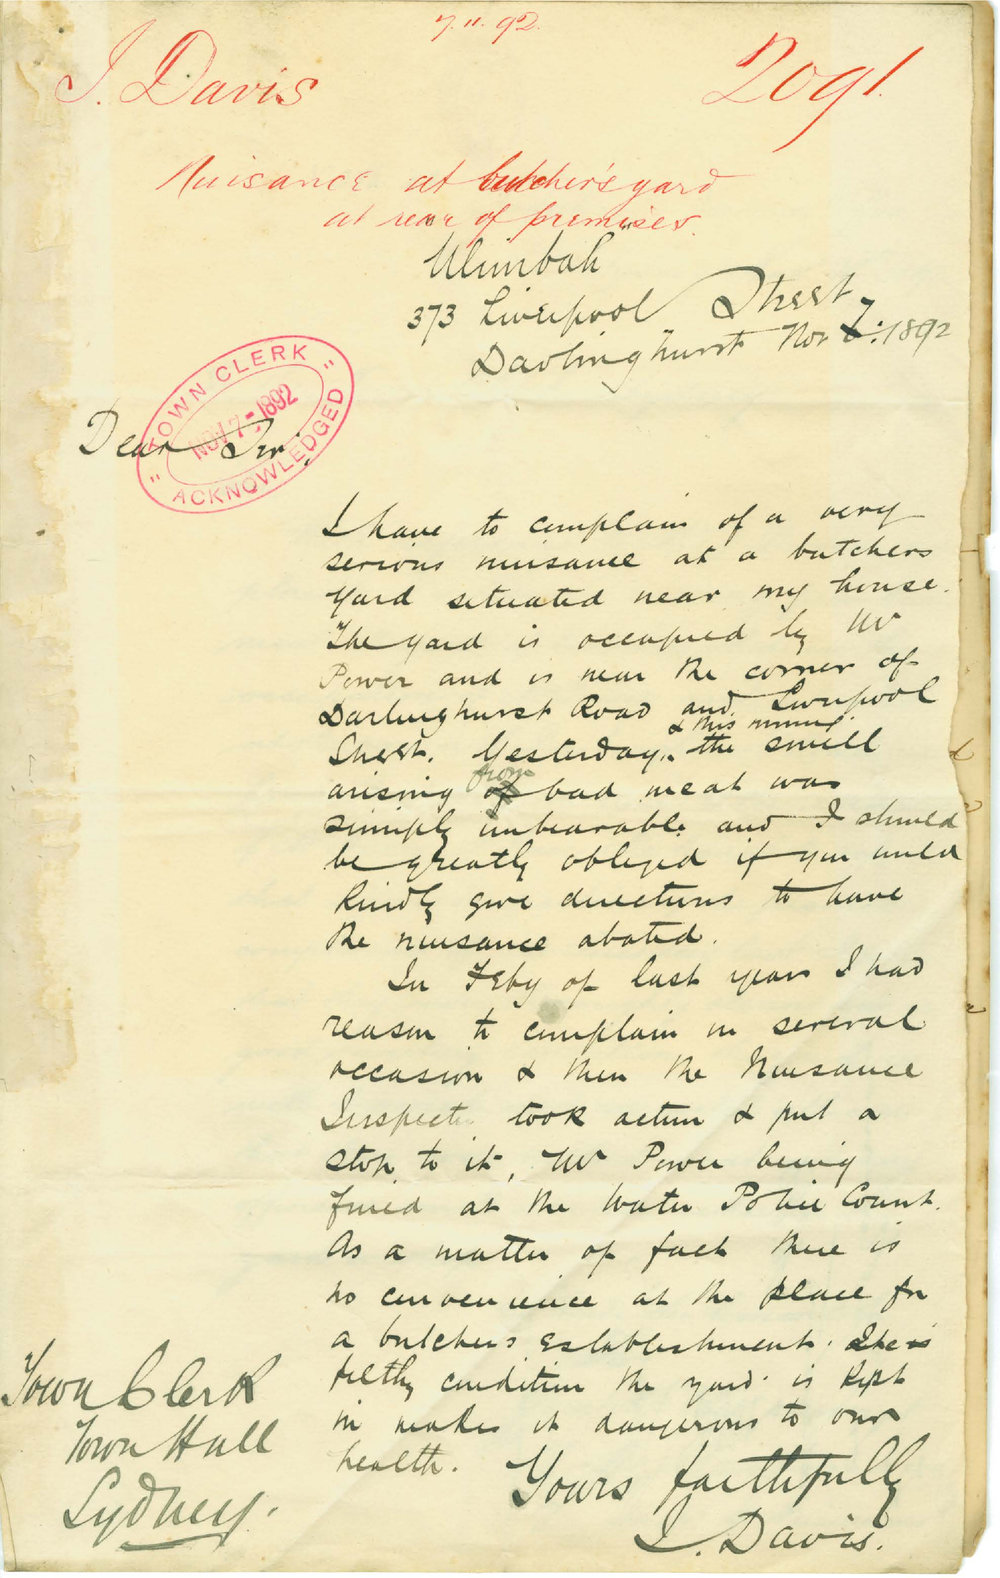 7.11.92.
J. Davis
2091.
Nuisance at butcher's yard
at rear of premises.
373 Liverpool Street
Darlinghurst Nov 7: 1892
"TOWN CLERK"
NOV 7-1892
ACKNOWLEDGED
Dear Sir,
I have to complain of a very
serious nuisance at a butchers
Yard situated near my house.
The yard is occupied by Mr
Power and is near the corner of
Darlinghurst Road and Liverpool
& this morning
Street. Yesterday, the smell
from
arising of bad meat was
simply unbearable and I should
be greatly obliged if you would
kindly give directions to have
the nuisance abated.
In Feby of last year I had
reason to complain on several
occasion & then the Nuisance
Inspector took action & put a
stop to it, Mr Power being
fined at the Water Police Court.
As a matter of fact there is
no convenience at the place for
a butchers establishment. The
filthy condition the yard is kept
in makes it dangerous to our
health.
Yours faithfully
J. Davis.
Town Clerk
Town Hall
Sydney.